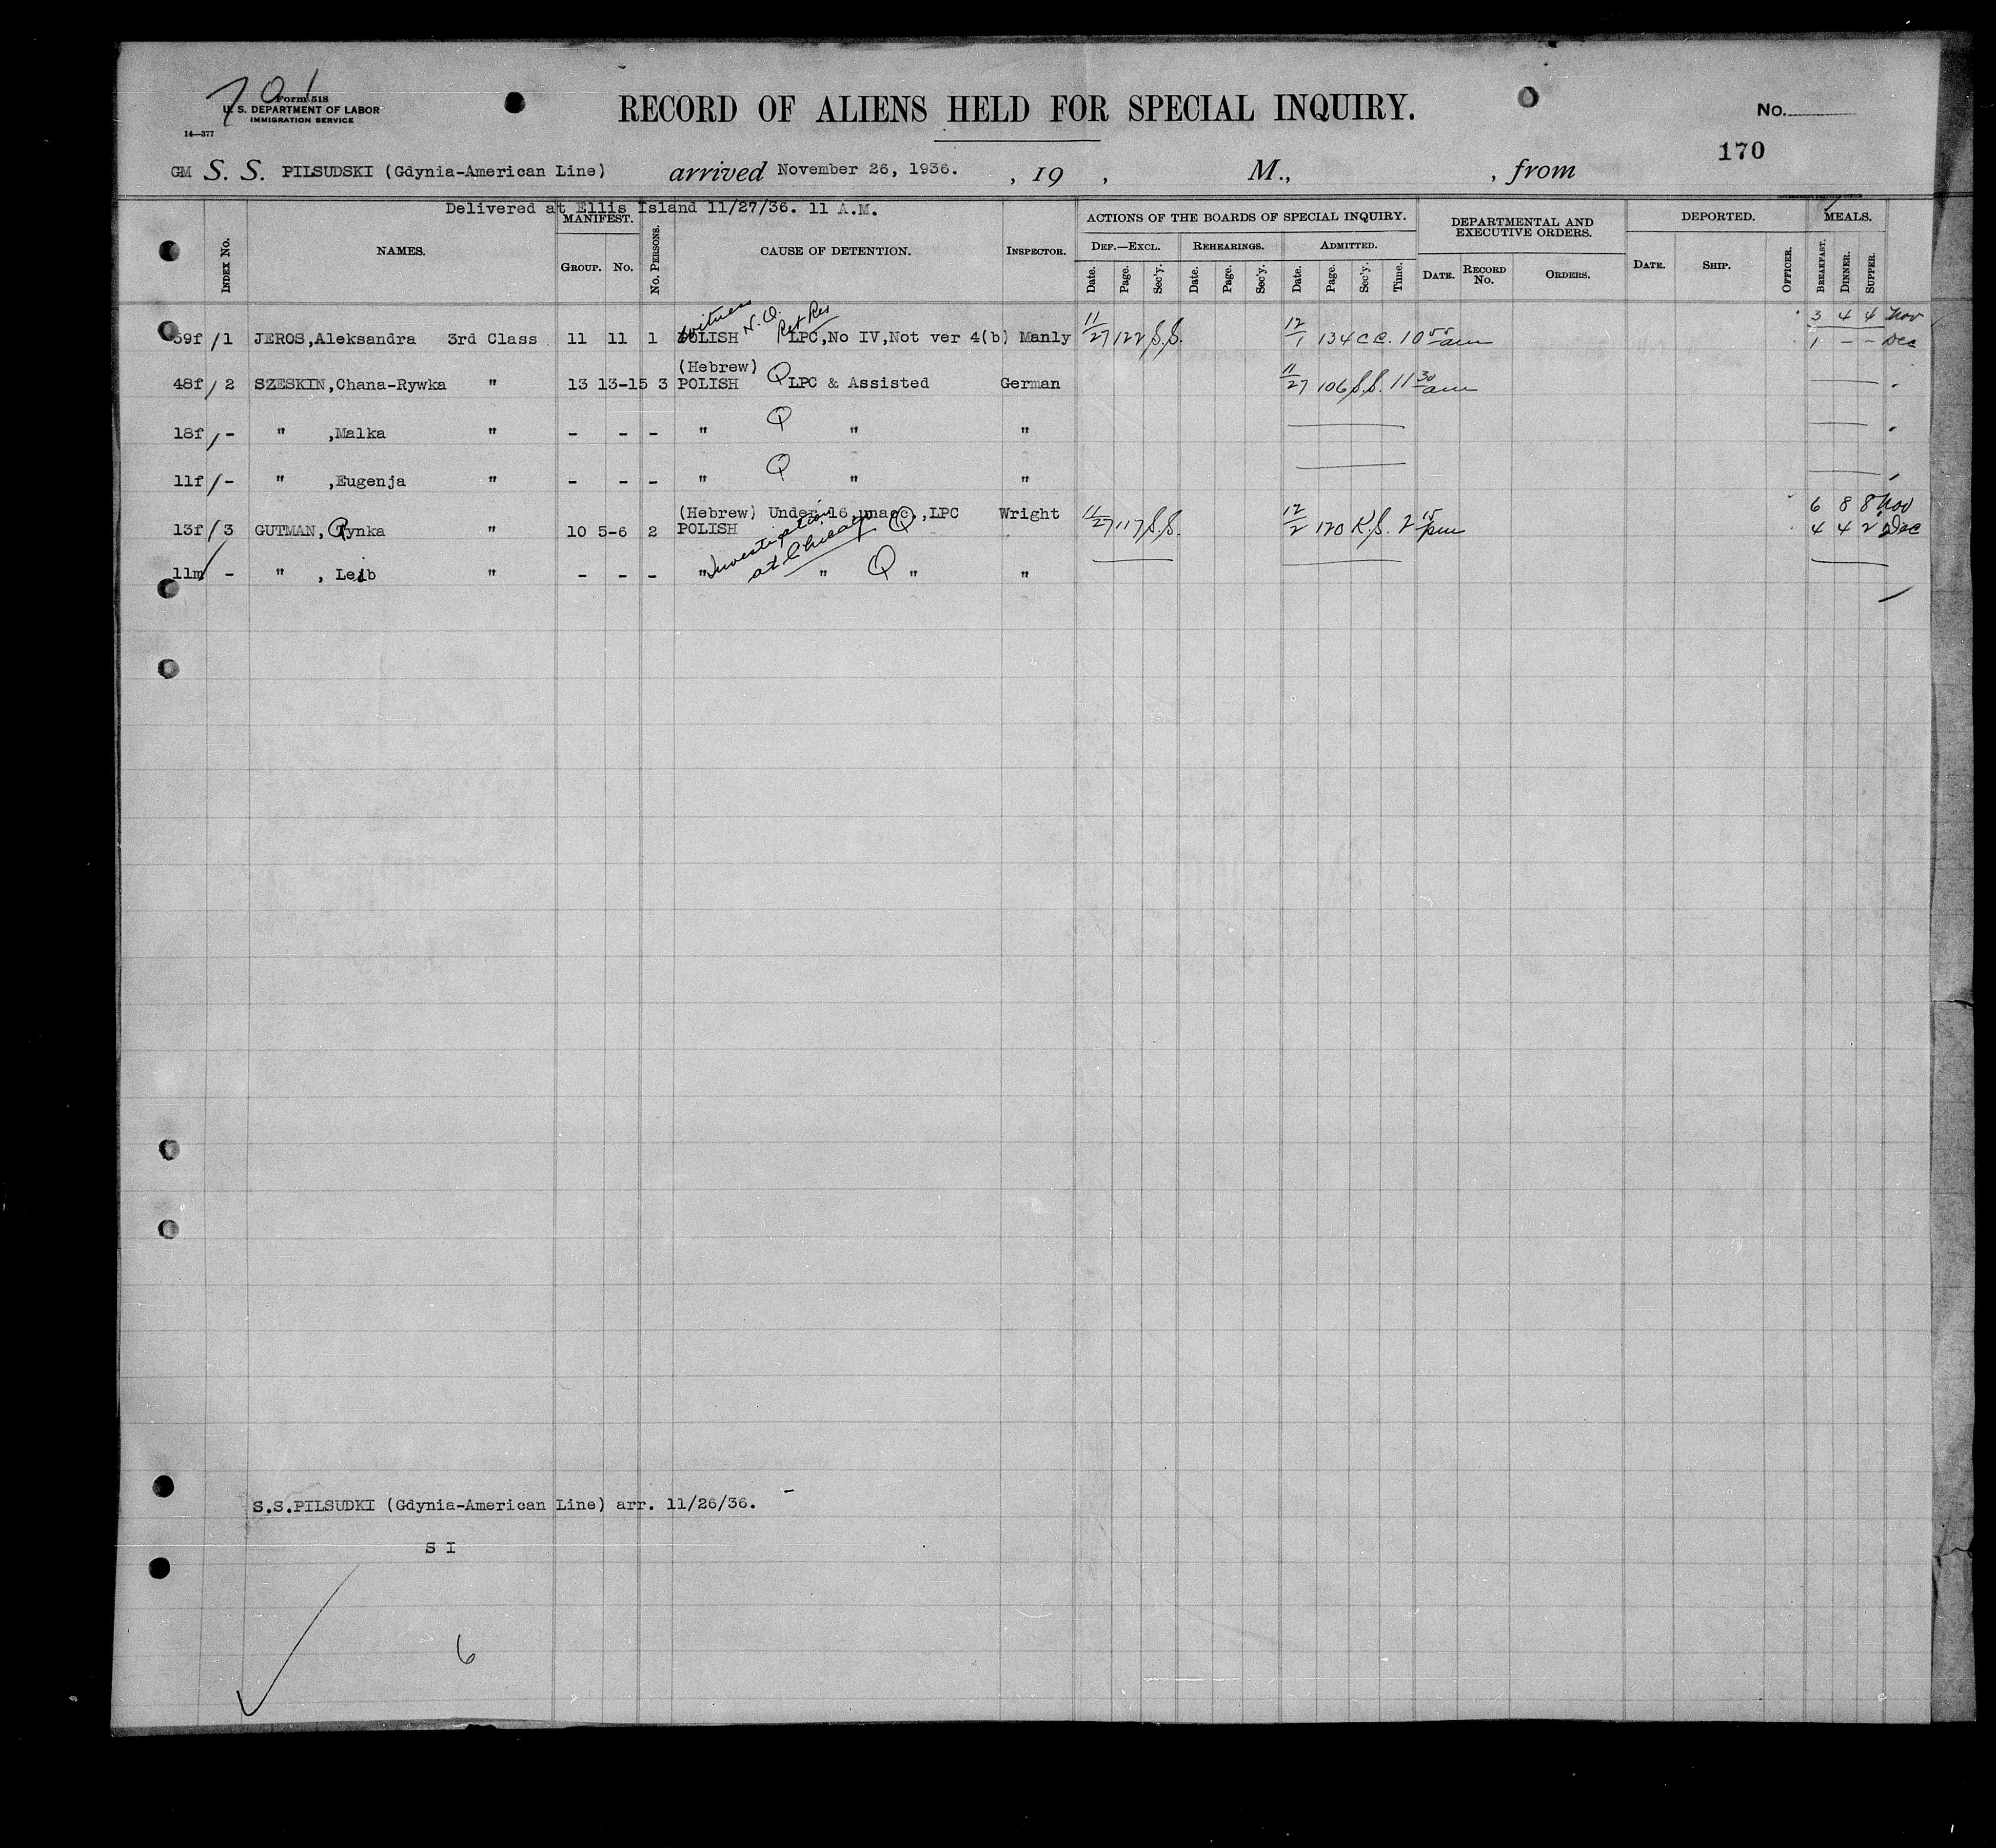 701
Form 518
U. S. DEPARTMENT OF LABOR
IMMIGRATION SERVICE
14—377
RECORD OF ALIENS HELD FOR SPECIAL INQUIRY.
No.
170
GM S. S. PILSUDSKI (Gdynia-American Line) arrived November 26, 1936. , 19 , M., , from
Delivered at Ellis Island 11/27/36. 11 A.M.
INDEX No. NAMES. MANIFEST. GROUP. No. No. PERSONS. CAUSE OF DETENTION. INSPECTOR. ACTIONS OF THE BOARDS OF SPECIAL INQUIRY. DEF.—EXCL. Date. Page. Sec'y. REHEARINGS. Date. Page. Sec'y. ADMITTED. Date. Page. Sec'y. Time. DEPARTMENTAL AND EXECUTIVE ORDERS. DATE. RECORD No. ORDERS. DEPORTED. DATE. SHIP. OFFICER. MEALS. BREAKFAST. DINNER. SUPPER.
witness N.Q. Ret Res 3 4 4 Nov
59f / 1 JEROS,Aleksandra 3rd Class 11 11 1 POLISH LPC,No IV,Not ver 4(b) Manly 11/27 122 S.S. 12/1 134 CC. 10 55 am 1 - - Dec
(Hebrew)
48f / 2 SZESKIN,Chana-Rywka " 13 13-15 3 POLISH Q LPC & Assisted German 11/27 106 S.S. 11 30 am
18f / - " ,Malka " - - - " Q " "
11f / - " ,Eugenja " - - - " Q " "
(Hebrew) Under 16 unacc.,LPC Wright 6 8 8 Nov
13f / 3 GUTMAN, Rynka " 10 5-6 2 POLISH Q 11/27 117 S.S. 12/2 170 K.S. 2 15 pm 4 4 2 Dec
Investigation at Chicago
11m / - " , Leib " - - - " " Q " "
S.S.PILSUDKI (Gdynia-American Line) arr. 11/26/36.
S I
6